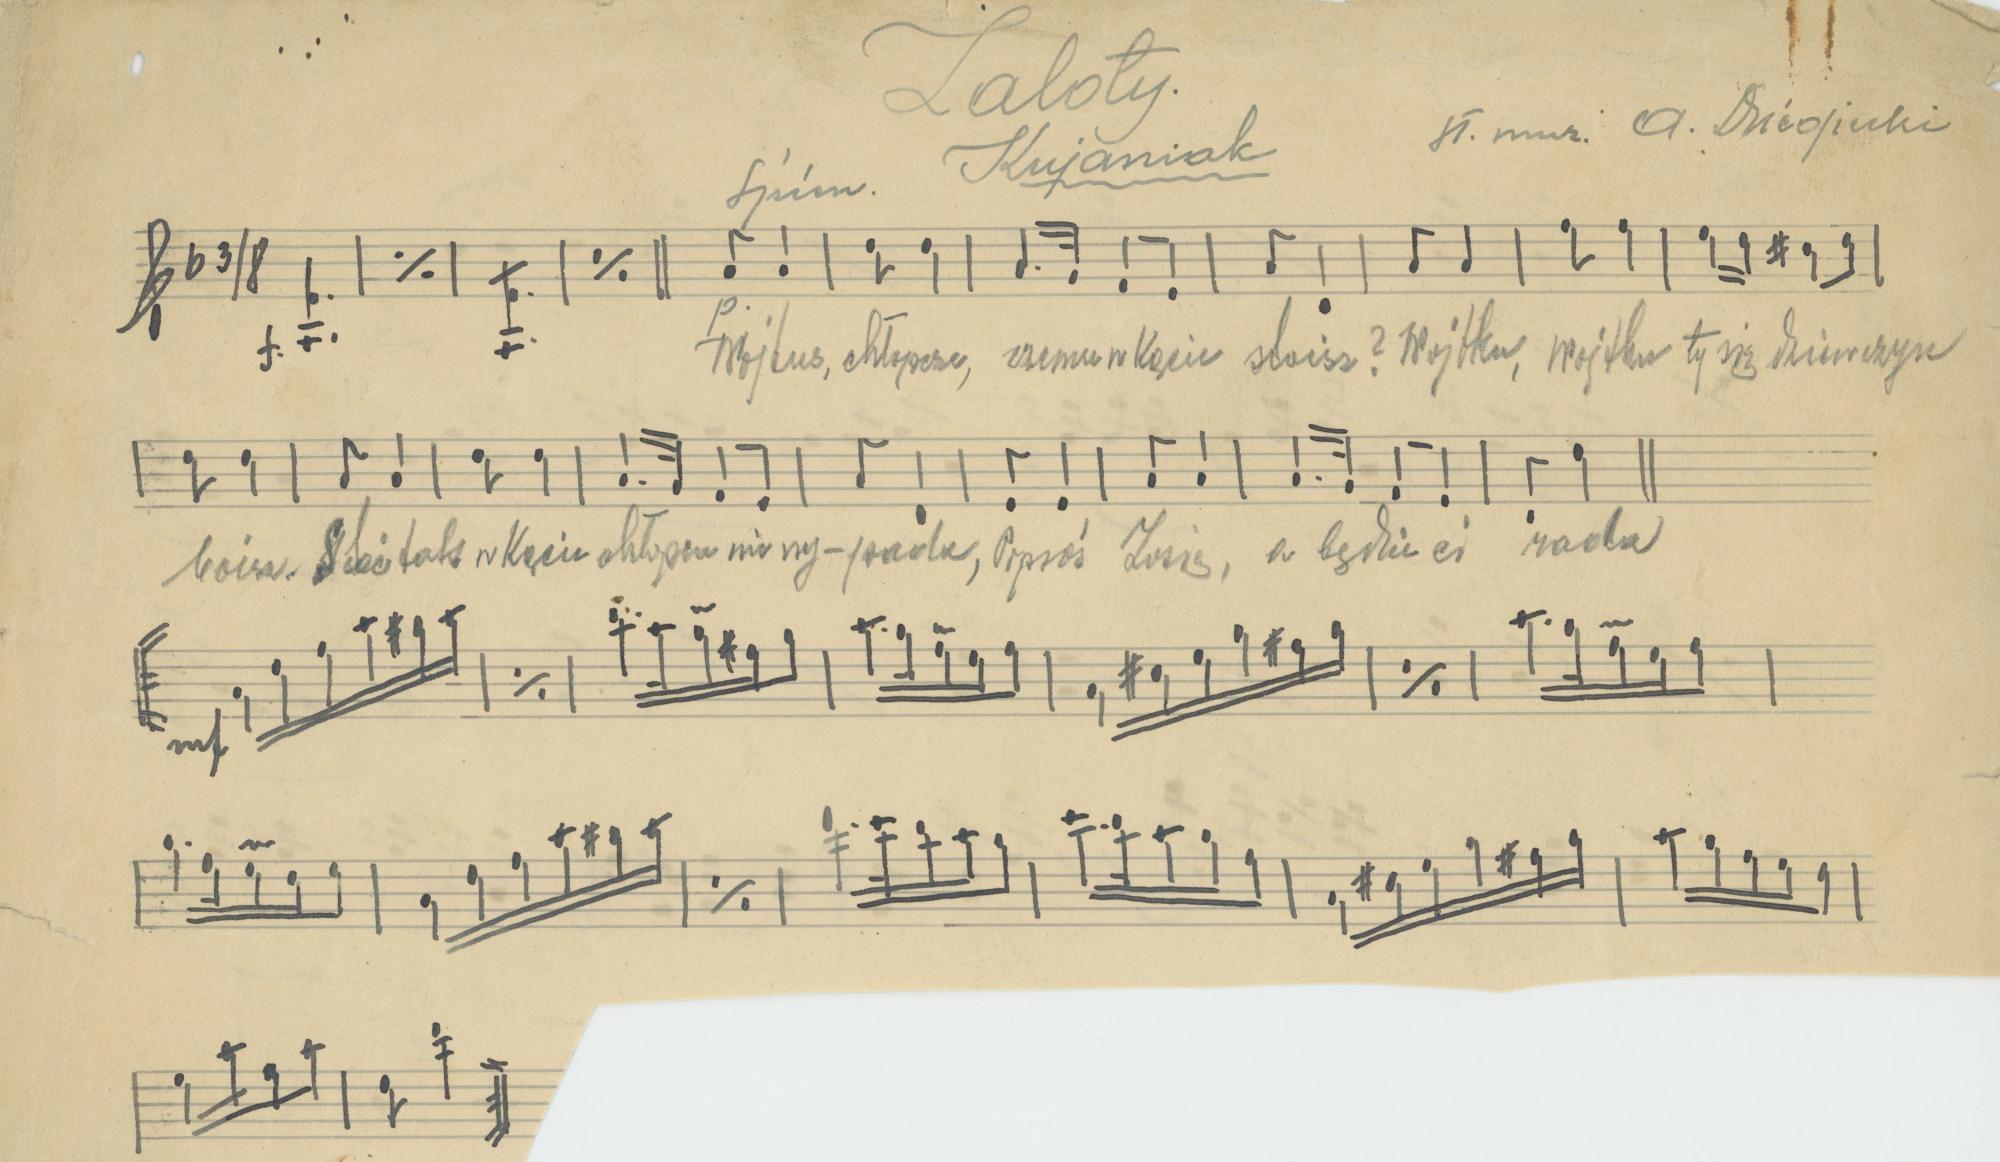 Zaloty.
Kujawiak
sł. muz. A.
Śpiew.
3/8
f.
P.
Wojtuś, chłopcze, czemu w kącie stoisz? Wojtku, Wojtku ty się dziewczyn
boisz. Stać tak w kącie chłopcu nie wy-pada, Poproś Zosię, a będzie ci rada
mf